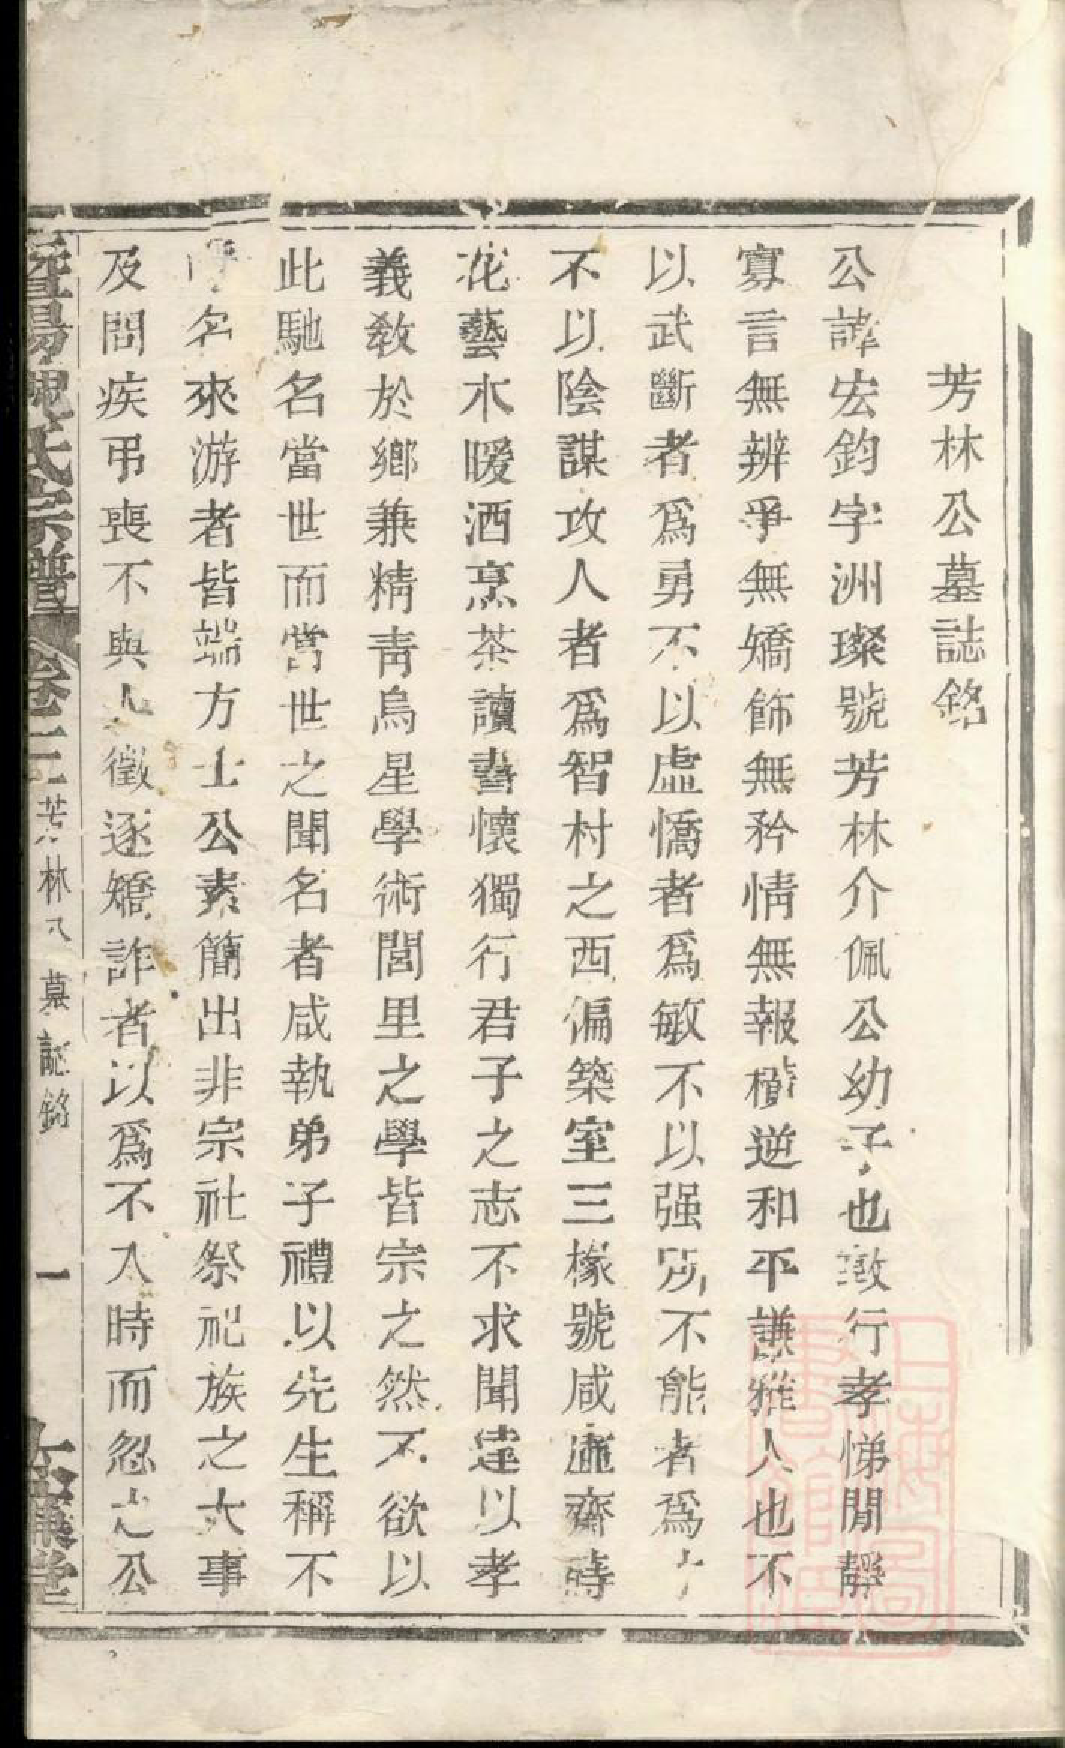 芳林公墓誌銘
公諱宏鈞字洲璨號芳林介佩公幼子也敦行孝悌閒靜
寡言無辨爭無矯飾無矜情無報橫逆和平謙雅人也不
以武斷者爲勇不以虛憍者爲敏不以强所不能者爲才
不以陰謀攻人者爲智村之西偏築室三椽號咸亟齋時
花藝木暖酒烹茶讀書懷獨行君子之志不求聞達以孝
義敎於鄉兼精靑烏星學術閭里之學皆宗之然不欲以
此馳名當世而當世之聞名者咸執弟子禮以先生稱不
名來游者皆端方士公素簡出非宗社祭祀族之大事
及問疾弔喪不與人徵逐矯詐者以爲不入時而忽之公
暨陽 氏宗譜 卷二 芳林公墓誌銘 一 堂